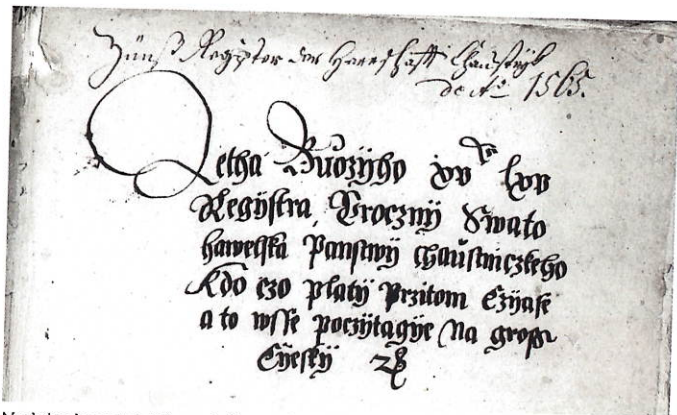 Zünß Register der Herrschafft Chaustnigk
de Aō 1565.
Letha Buozijho xv^c lxv
Registra Vrocznij Swato
hawelska Panstwij Chaustniczkeho
Kdo czo platij Przitom Czijase
a to wsse poczijtagije Na gross
Cijeskij